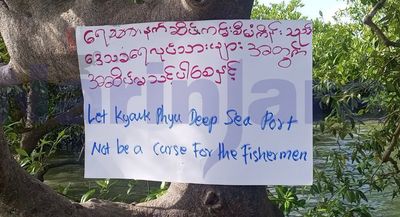 ရေသားနက်ဆိပ်ကမ်းစီမံကိန်း သည်
ဒေသခံရေလုပ်သားများ အတွက်
အဆိပ်မသင့်ပါစေနှင့်
Let Kyauk Phyu Deep Sea Port
Not be a curse For the Fishermen